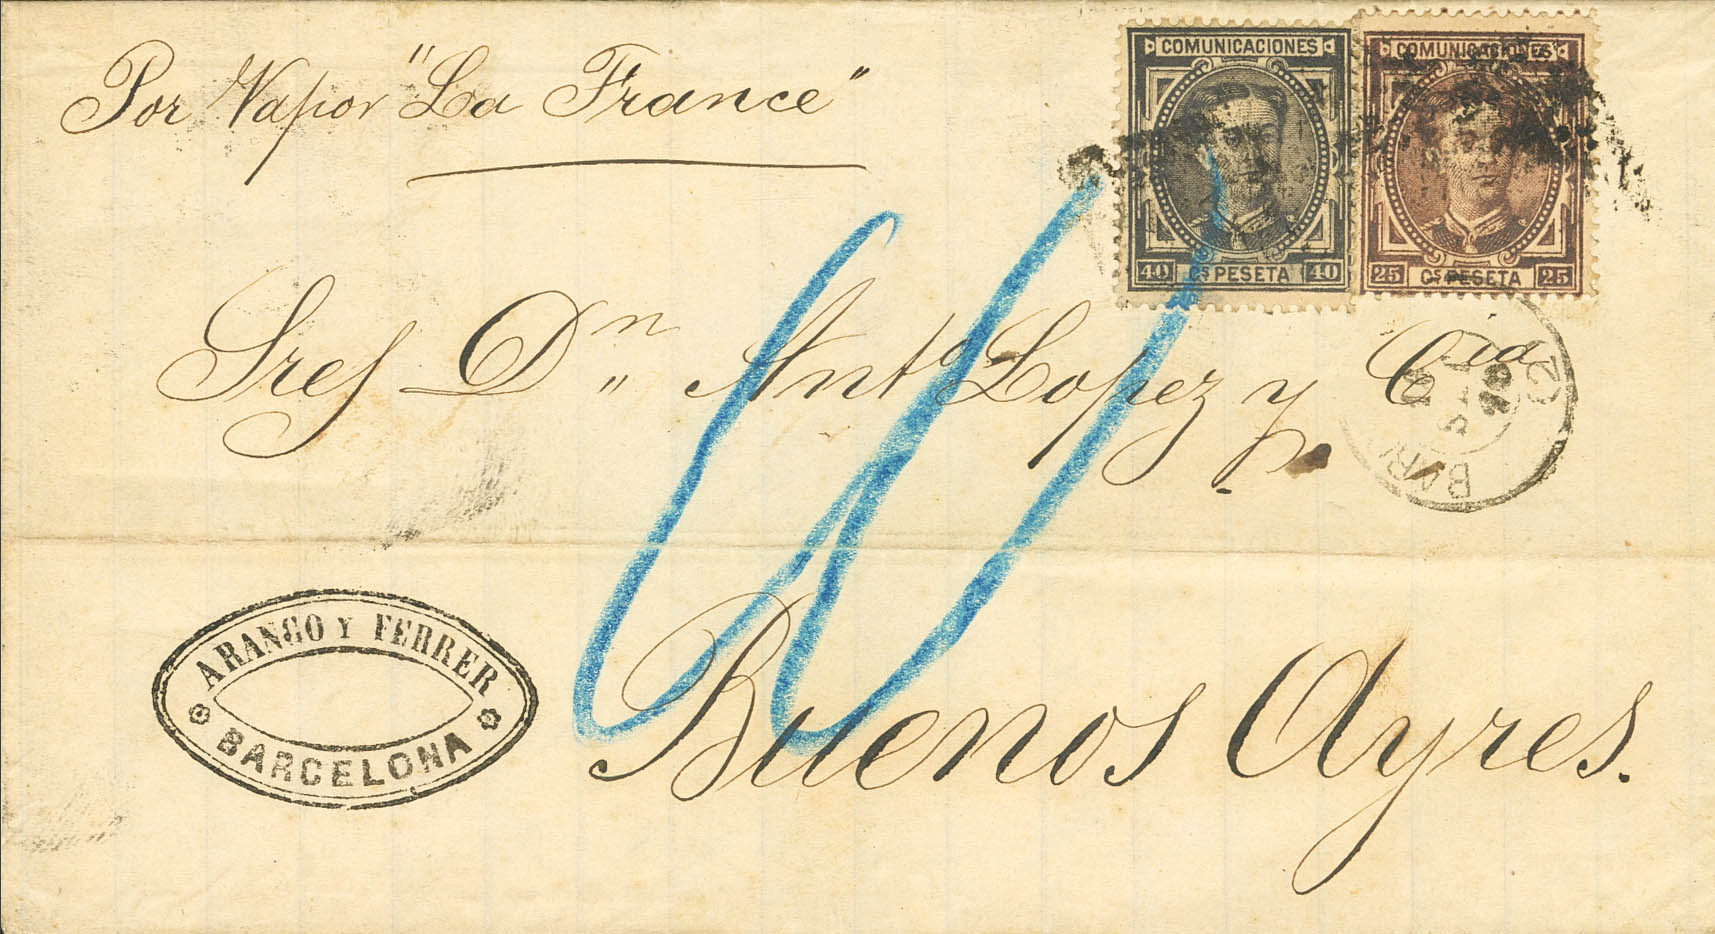 Por Vapor "La France"
COMUNICACIONES
40 Cs PESETA 40
COMUNICACIONES
25 Cs PESETA 25
Sres Dn Anto Lopez y Cia
ARANGO Y FERRER
BARCELONA
Buenos Ayres.